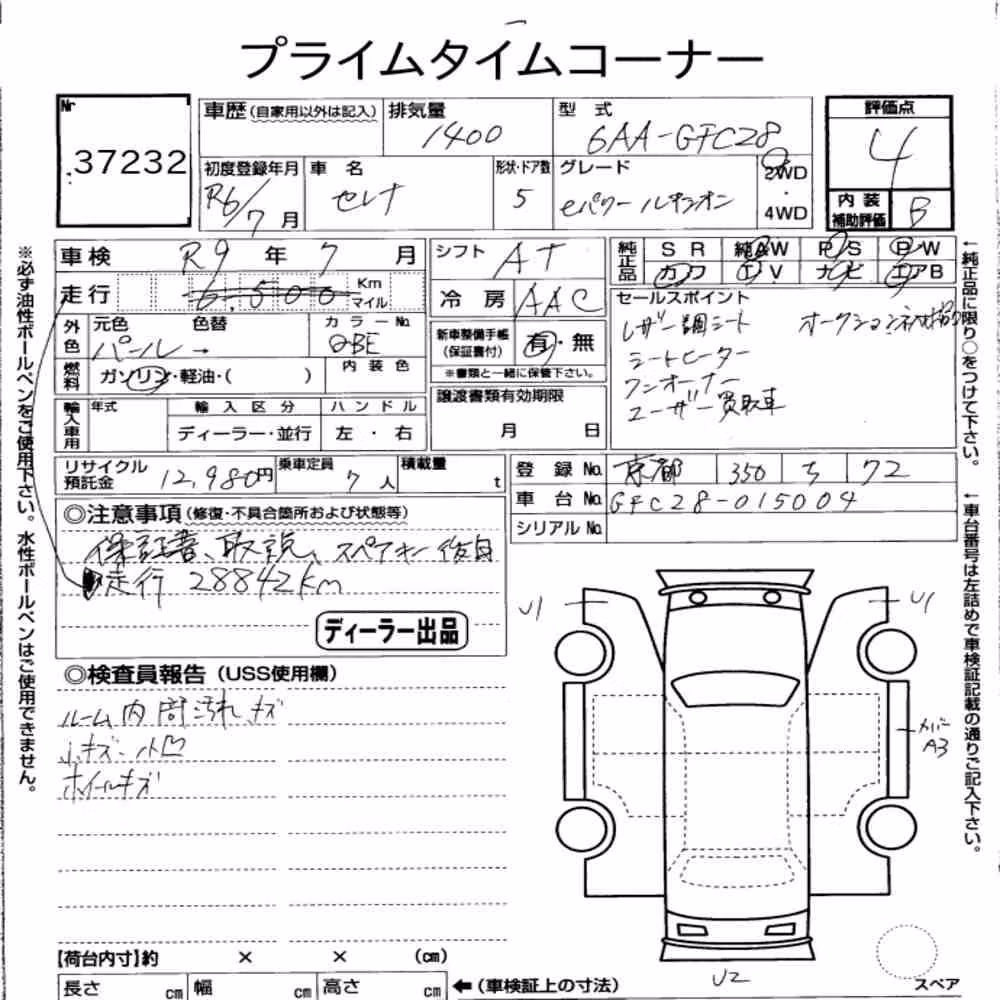 プライムタイムコーナー
Nr
37232
車歴(自家用以外は記入)
排気量
1400
型 式
6AA-GFC28
評価点
4
初度登録年月
R6/7月
車 名
セレナ
形状・ドア数
5
グレード
eパワー ルキシオン
2WD
・
4WD
内装
補助評価
B
車検 R9年 7月
シフト AT
純正品
SR 純AW P/S P/W
カワ TV ナビ エアB
走行 6,500 Km マイル
冷房 AAC
セールスポイント
レザー調シート
シートヒーター
ワンオーナー
ユーザー買取車
外色
元色 色替
パール→
カラーNo.
QBE
新車整備手帳
(保証書付)
有・無
※書類と一緒に保管下さい。
燃料
ガソリン・軽油・( )
内装色
譲渡書類有効期限
月 日
輸入車用
年式
輸入区分
ハンドル
ディーラー・並行
左・右
リサイクル
預託金
12,980円
乗車定員
7人
積載量
t
登録No. 京都 350 ち 72
車台No. GFC28-015004
シリアルNo.
◎注意事項(修復・不具合箇所および状態等)
保証書、取説、スペアキー後日
走行 28842km
ディーラー出品
◎検査員報告(USS使用欄)
ルーム内 汚れ キズ
小キズ・小凹
ホイールキズ
U1
U1
カバー
A3
U2
スペア
【荷台内寸】約 × × (cm)
長さ cm 幅 cm 高さ cm
←(車検証上の寸法)
※必ず油性ボールペンをご使用下さい。水性ボールペンはご使用できません。
←純正品に限り○をつけて下さい。
←車台番号は左詰めで車検証記載の通りご記入下さい。